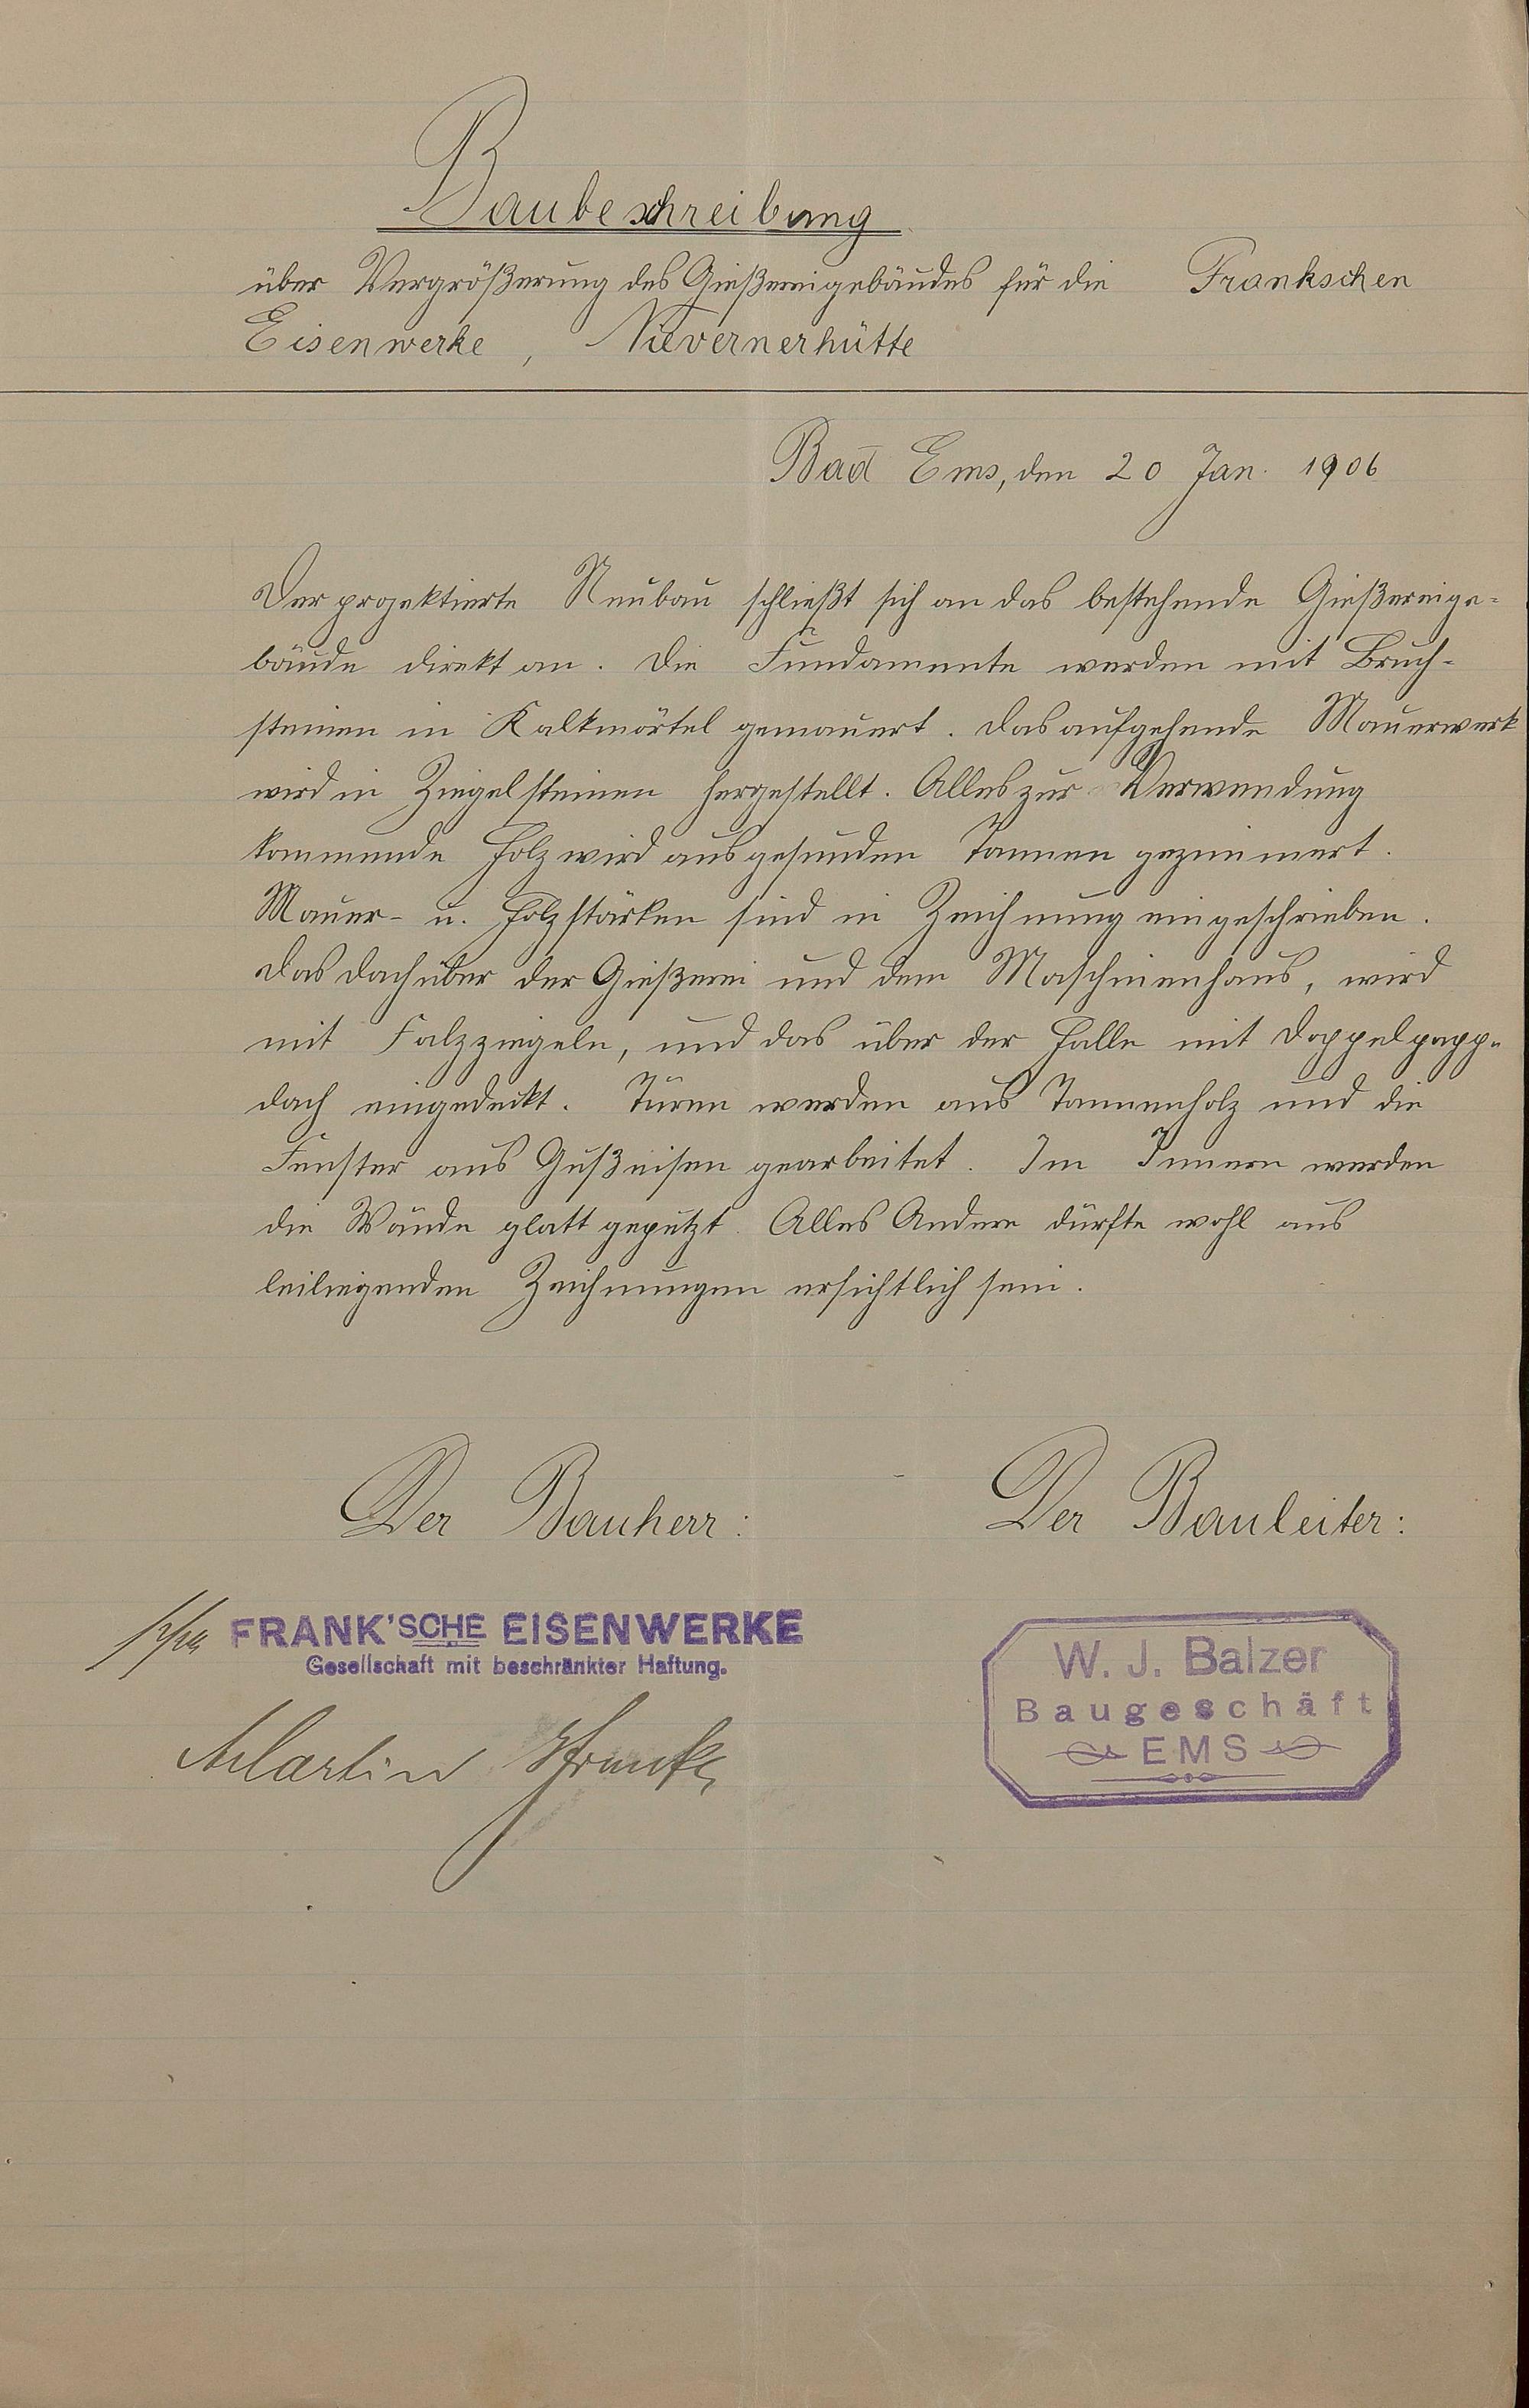 Baubeschreibung
über Vergrößerung des Gießereigebäudes für die Frankschen
Eisenwerke, Nievernerhütte
Bad Ems, den 20 Jan. 1906
Der projektierte Neubau schließt sich an das bestehende Gießereige-
bäude direkt an. Die Fundamente werden mit Bruch-
steinen in Kalkmörtel gemauert. Das aufgehende Mauerwerk
wird in Ziegelsteinen hergestellt. Alles zur Verwendung
kommende Holz wird aus gesunden Tannen gezimmert.
Mauer- u. Holzstärken sind in Zeichnung eingeschrieben.
Das Dach über der Gießerei und dem Maschinenhaus, wird
mit Falzziegeln, und das über der Halle mit Doppelpapp-
dach eingedeckt. Türen werden aus Tannenholz und die
Fenster aus Gußeisen gearbeitet. Im Innern werden
die Wände glatt geputzt. Alles Andere dürfte wohl aus
beiliegenden Zeichnungen ersichtlich sein.
Der Bauherr:
Der Bauleiter:
ppa FRANK'SCHE EISENWERKE
Gesellschaft mit beschränkter Haftung.
Martin
W. J. Balzer
Baugeschäft
EMS